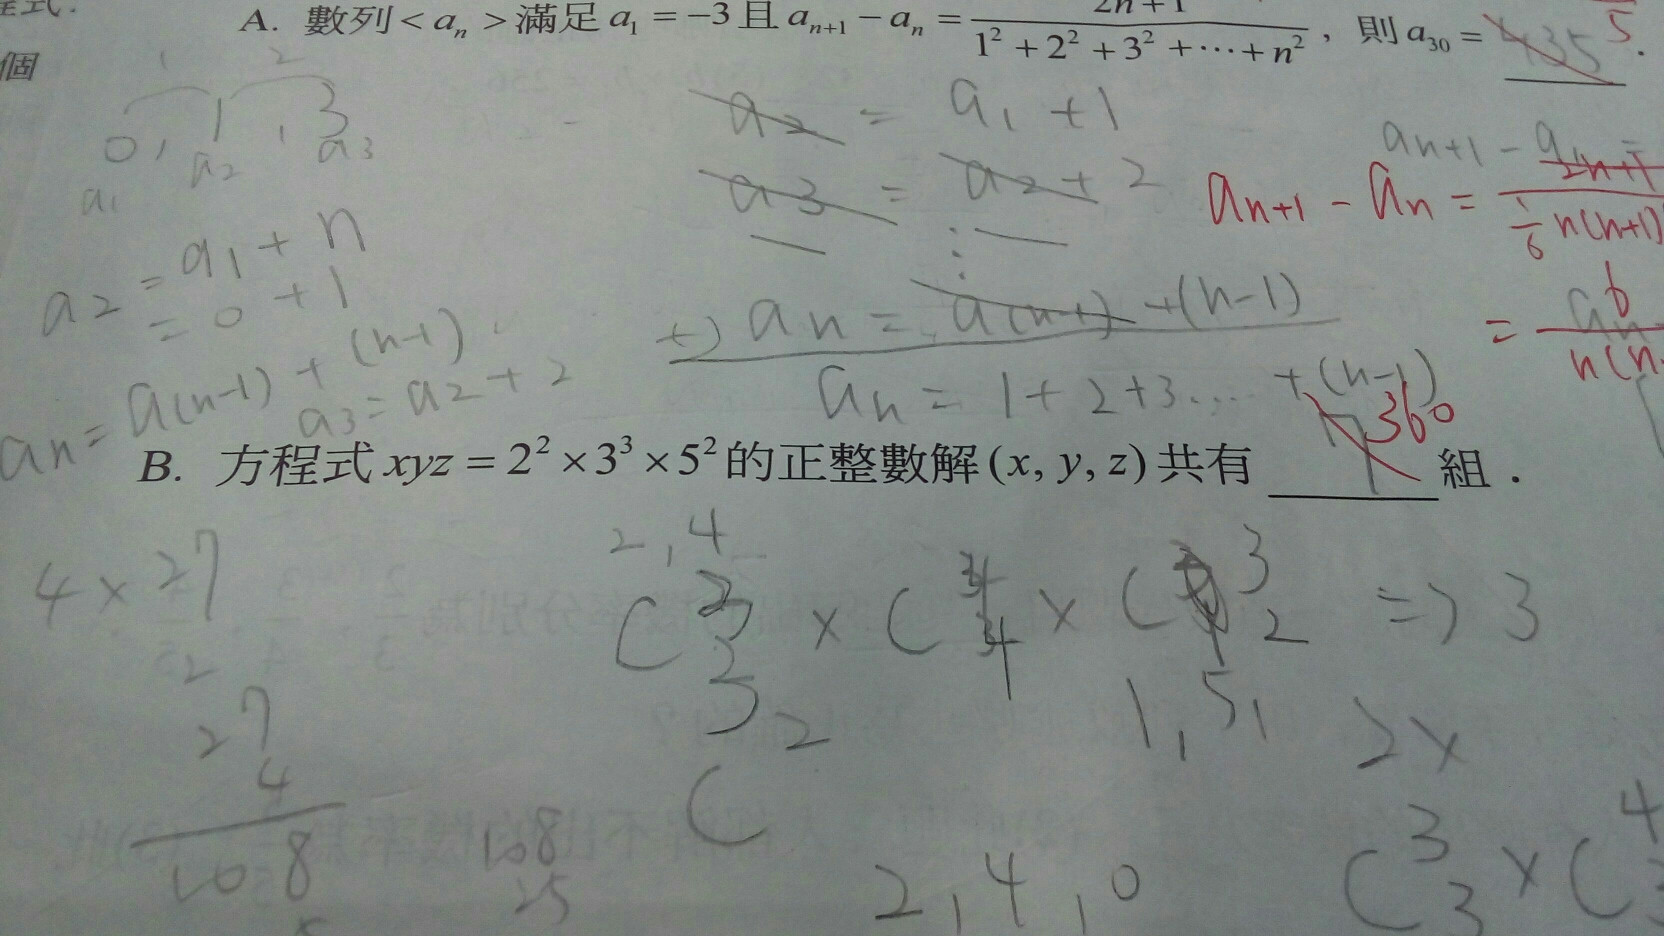 程式.
個
A. 數列 < aₙ > 滿足 a₁ = −3 且 aₙ₊₁ − aₙ = (2n+1)/(1² + 2² + 3² + ⋯ + n²) , 則 a₃₀ = 435 5 .
1 2
0, 1, 3
a₁ a₂ a₃
a₂ = a₁ + n
= 0 + 1
aₙ = a(n-1) + (n-1)
a₃ = a₂ + 2
a₂ = a₁ + 1
a₃ = a₂ + 2
⋮
+) aₙ = a(n-1) + (n-1)
aₙ = 1 + 2 + 3 .... + (n-1)
aₙ₊₁ -
aₙ₊₁ - aₙ = 2n+1 / 1/6 n(n+1)
= 6 / n(n
B. 方程式 xyz = 2² × 3³ × 5² 的正整數解 (x, y, z) 共有 360 組 .
4 × 27
27
4
108
108
25
2, 4
C × C × C 3 2 => 3
3 2
1, 5,
2x
C
2, 4, 0
C 3 3 × C 4